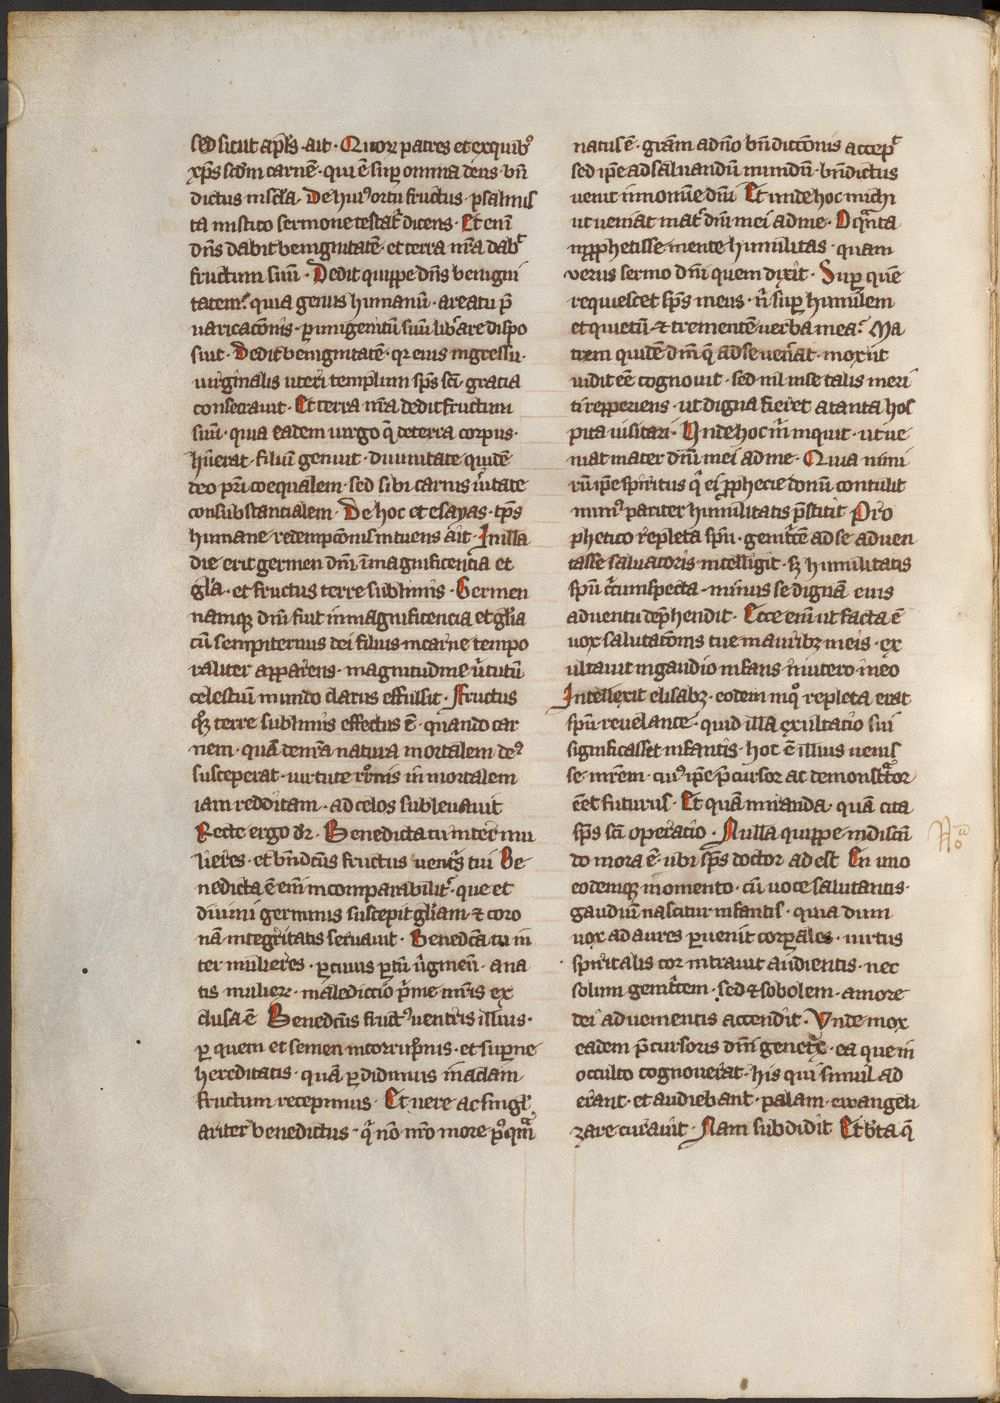 sed sicut apl's · ait · Quor patres et exquib9
xp̄s scdm carnē · qui ē sup om̄nia deus · bn̄
dictus in scl'a · De hui9 ortu fructus · psalmis
ta mistico sermone testat᷑ dicens · Et enī
dn̄s dabit benignitatē · et terra nr̄a dab᷑
fructum suū · Dedit quippe dn̄s benigni
tatem · quia genus humanū · areatu p̄
uaricac̄onis · p unigenitū suū lib̾are dispo
suit · Dedit benignitatē · qr eius ingressu ·
uirginalis uteri templum sp̄s sc̄i · gracia
consecrauit · Et terra nr̄a dedit fructum
suū · quia eadem uirgo q̄ de terra corpus ·
hūerat · filiū genuit · diuinitate quidē
deo pr̄i coequalem · sed sibi carnis ūitate
consubstancialem · De hoc et esayas · tp̄s
humane redempc̄onis intuens ait · In illa
die erit germen dn̄i ī magnificencia et
gl̄a · et fructus terre sublimis · Germen
namq; dn̄i fuit in magnificencia et gl̄ia
cū sempiternus dei filius in carne tempo
raliter apparens · magnitudine ū̄tutū
celestiū mundo clarus effulsit · Fructus
q̄z terre sublimis effectus ē · quando car
nem · quā de nr̄a natura mortalem de9
susceperat · uirtute r̄onis in mortalem
iam redditam · ad celos subleuauit
Recte ergo dr̄ · Benedicta tu inter mu
lieres · et bn̄dc̄us fructus uent's tui Be
nedicta ē em̄ incomparabilit᷑ · que et
diuini germinis suscepit gl̄iam · ⁊ coro
nā integritatis seruauit · Benedc̄a tu in
ter mulieres · p cuius p̄tū ū̄gineū · a na
tis mulier · malediccio p̄me mr̄is ex
clusa ē Benedc̄us fruct9 uentris illius ·
p quem et semen incorrup̄nis · et superne
hereditatis · quā pdidimus in adam
fructum recepimus · Et uere ac singl'
ariter benedictus · q̄ nō nr̄o more p9q̄m
natus ē · gr̄am a dn̄o bn̄dicc̄onis accep᷑
sed ip̄e ad saluandū mundū · bn̄dictus
uenit in nomīe dn̄i Et unde hoc michi
ut ueniat mat᷑ dn̄i mei ad me · O q̄nta
in pphetisse mente humilitas · quam
verus sermo dn̄i quem dixit · Sup quē
requiescet sp̄s meus · n̄ sup humilem
et quietū · ⁊ trementē uerba mea · Ma
trem quidē dn̄i q̄ ad se uen̄at · mox ut
uidit eē cognouit · sed nil in se talis meri
ti repperiens · ut digna fieret a tanta hos
pita uisitari · Unde hoc m̄ inquit · ut ue
niat mater dn̄i mei ad me · Quia nimi
rū ip̄e spiritus q̄ ei pphecie donū contulit
munus pariter humilitatis p̄stitit Pro
phetico repleta sp̄u · genit̾cē ad se aduen
tasse saluatoris intelligit · sz humilitatis
sp̄u c̾cumspecta · minus se dignā eius
aduentu dep̄hendit · Ecce eni ut facta ē
uox salutac̄onis tue in aurib; meis · ex
ultauit in gaudio infans in utero meo
Intellexit elisabz · eodem ī quo repleta erat
sp̄u reuelante · quid illa exultatio sui
significasset infantis · hoc ē illius uenis
se mr̄em · cui9 ip̄e p̄cursor ac demonstrator
eēt futurus · Et quā miranda · quā cita
sp̄s sc̄i operacio · Nulla quippe in discēn
do mora ē · ubi sp̄s doctor ad est In uno
eodemq; momento · cū uoce salutantis ·
gaudiū nascitur infantis · quia dum
uox ad aures puenit corpales · uirtus
spiritalis cor intrauit audientis · nec
solum genit̾cem · sed ⁊ sobolem · amore
dei aduenientis accendit · Unde mox
eadem p̄cursoris dn̄i genetx̾ · ea que in
occulto cognouerat · his qui simul ad
erant · et audiebant · palam · ewangeli
zare curauit · Nam subdidit Et bt̄a q̄